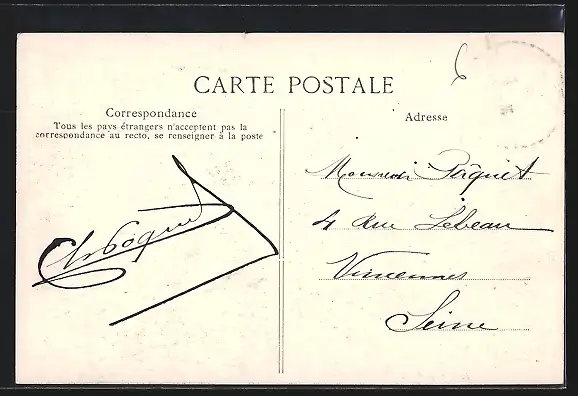 CARTE POSTALE
Correspondance
Tous les pays étrangers n'acceptent pas la
correspondance au recto, se renseigner à la poste
Adresse
Monsieur Pâquet
4 Rue Lebeau
Vincennes
Seine